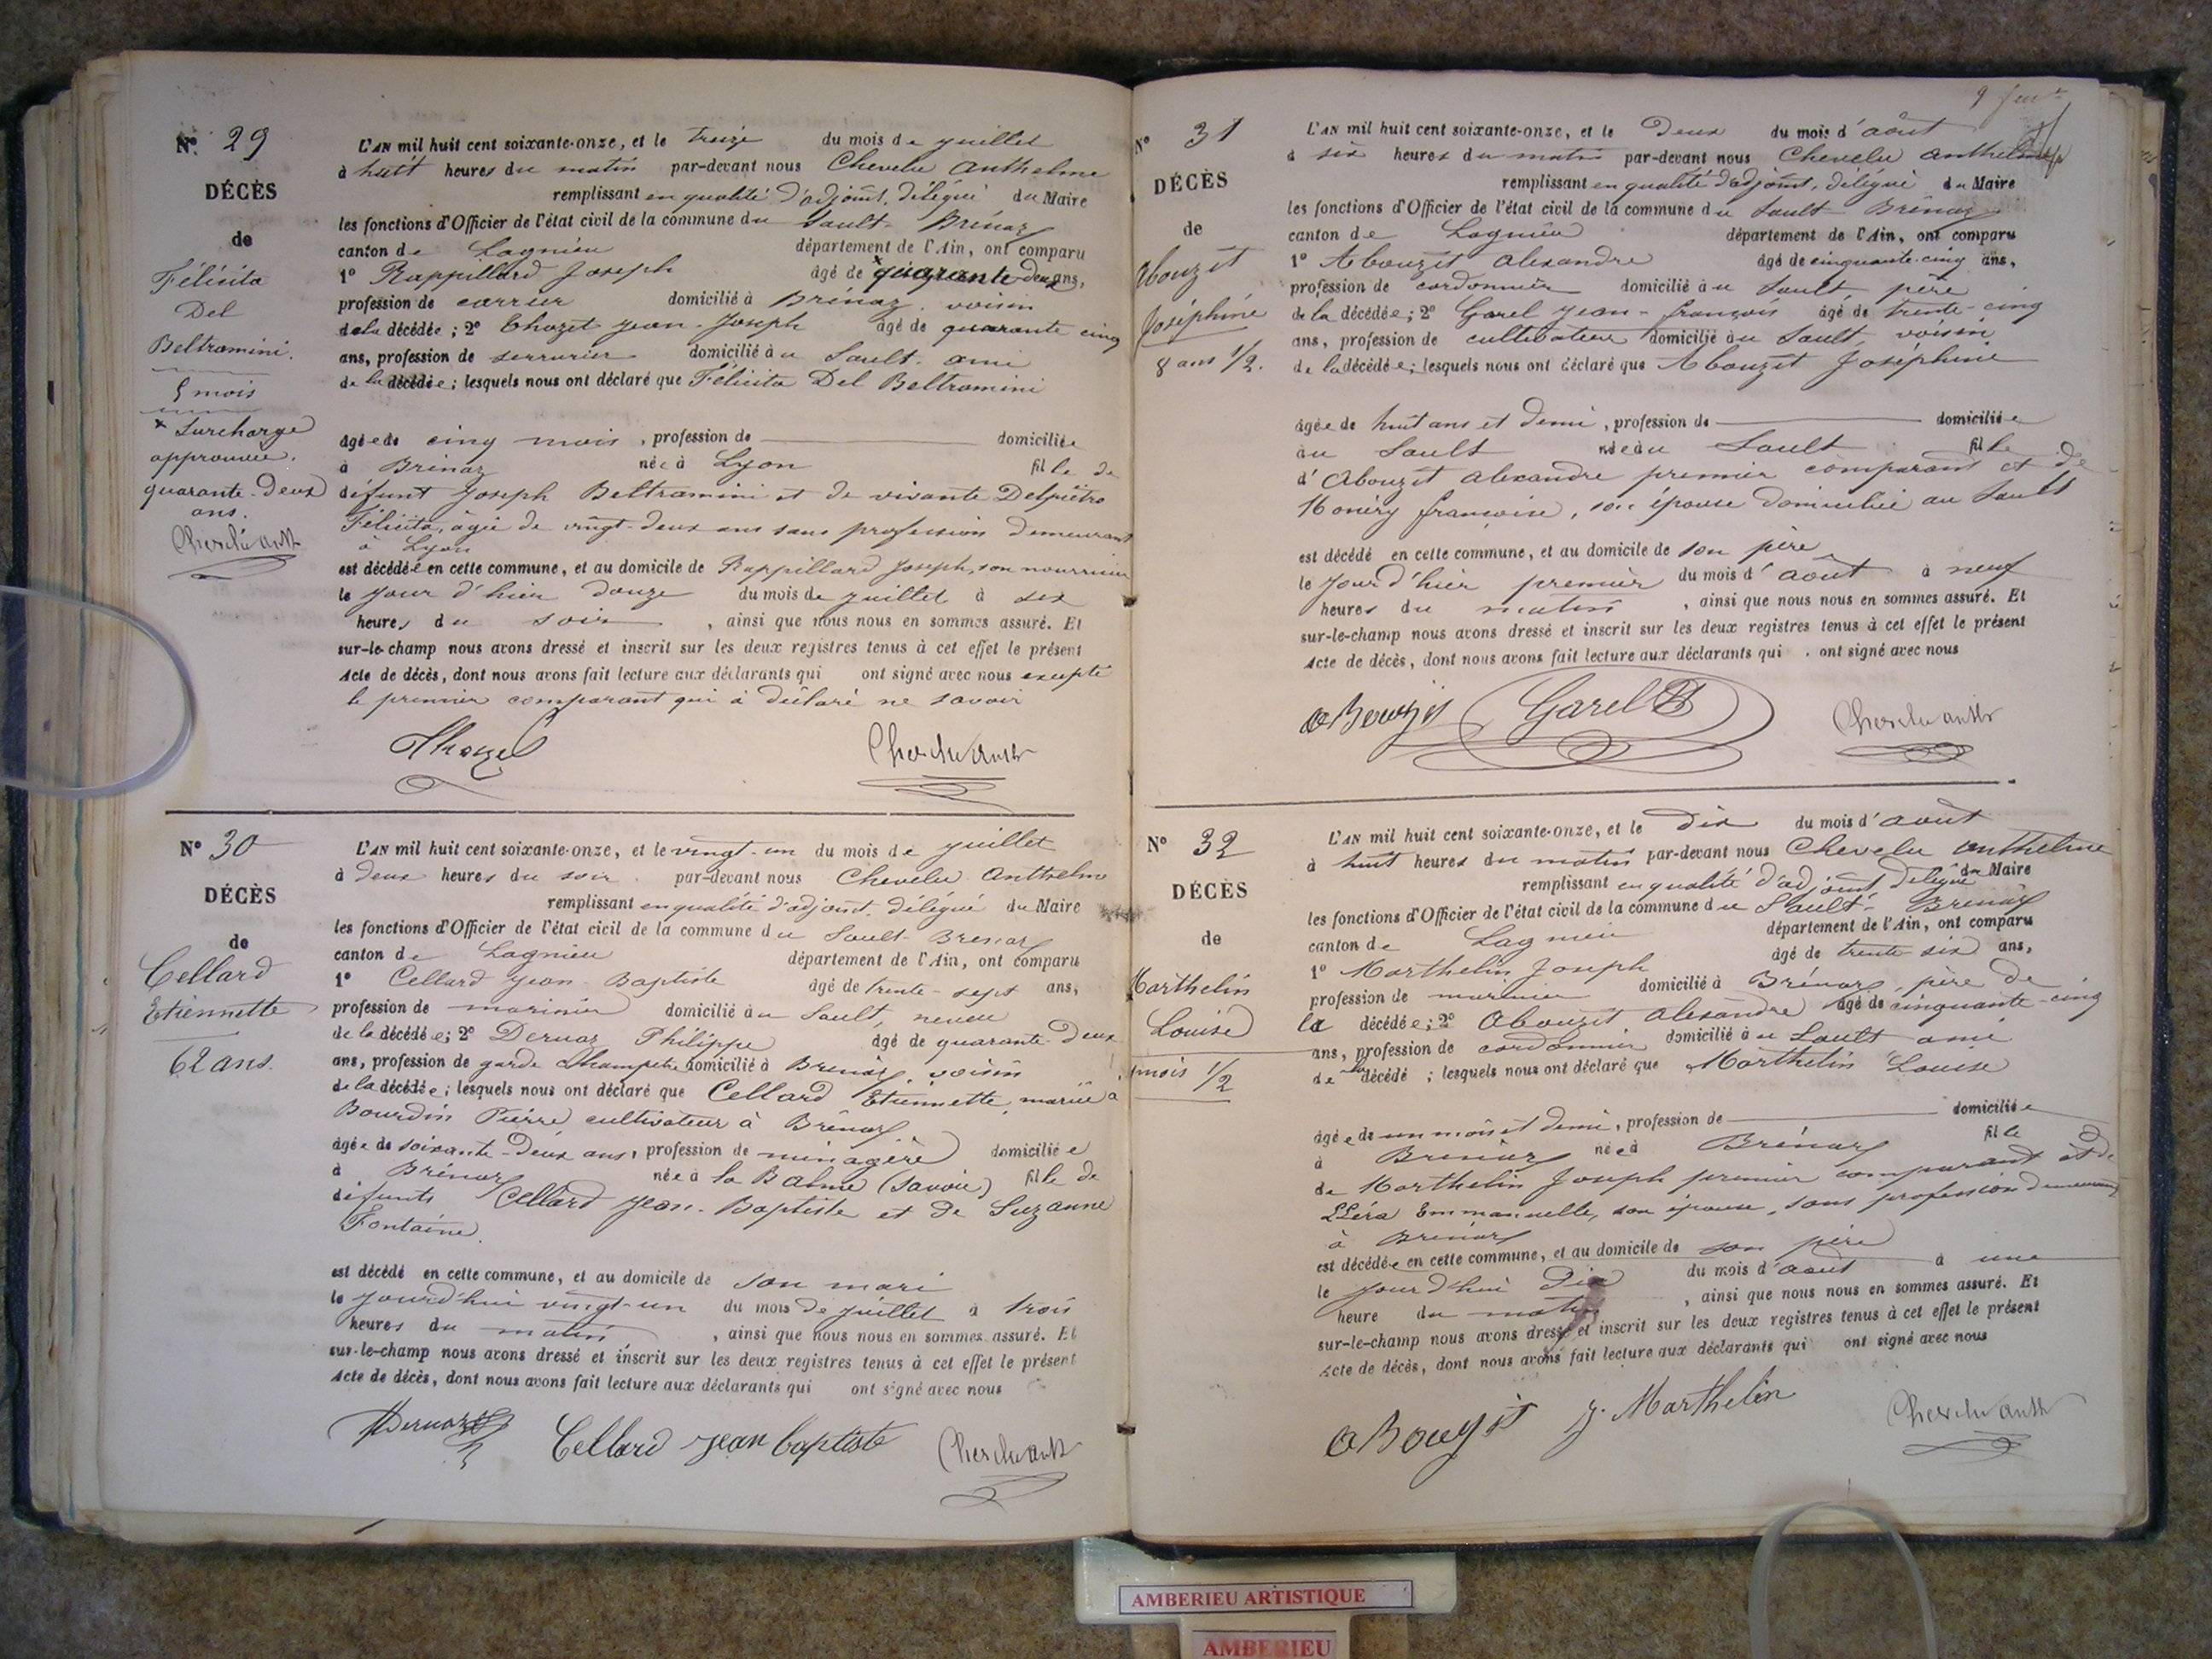 N° 29
DÉCÈS
de
Félicita
Del
Beltramini.
5 mois
x Surcharge
approuvée.
quarante-deux
ans.
L'AN mil huit cent soixante-onze, et le treize du mois de juillet
à huit heures du matin par-devant nous Chevelu Anthelme
remplissant en qualité d'adjoint, délégué du Maire
les fonctions d'Officier de l'état civil de la commune du Sault-Brénaz
canton de Lagnieu département de l'Ain, ont comparu
1° Rappillard Joseph âgé de x quarante-deux ans,
profession de carrier domicilié à Brénaz, voisin
de la décédée; 2° Chozet Jean-Joseph âgé de quarante cinq
ans, profession de serrurier domicilié au Sault-ami
de la décédée; lesquels nous ont déclaré que Félicita Del Beltramini
âgée de cinq mois, profession de domiciliée
à Brénaz née à Lyon fille de
défunt Joseph Beltramini et de vivante Delpiétro
Félicita, âgée de vingt-deux ans sans profession demeurant
à Lyon
est décédée en cette commune, et au domicile de Rappillard Joseph, son nourricier
le jour d'hier douze du mois de juillet à six
heures du soir, ainsi que nous nous en sommes assuré. Et
sur-le-champ nous avons dressé et inscrit sur les deux registres tenus à cet effet le présent
Acte de décès, dont nous avons fait lecture aux déclarants qui ont signé avec nous excepté
le premier comparant qui a déclaré ne savoir
N° 30
DÉCÈS
de
Cellard
Etiennette
62 ans.
L'AN mil huit cent soixante-onze, et le vingt-un du mois de juillet
à deux heures du soir par-devant nous Chevelu Anthelme
remplissant en qualité d'adjoint, délégué du Maire
les fonctions d'Officier de l'état civil de la commune du Sault-Brenaz
canton de Lagnieu département de l'Ain, ont comparu
1° Cellard Jean-Baptiste âgé de trente-sept ans,
profession de marinier domicilié au Sault, neveu
de la décédée; 2° Dervaz Philippe âgé de quarante-deux
ans, profession de garde champêtre domicilié à Brénaz, voisin
de la décédée; lesquels nous ont déclaré que Cellard Etiennette, mariée à
Bourdin Pierre cultivateur à Brénaz
âgée de soixante-deux ans, profession de ménagère domiciliée
à Brénaz née à la Balme (Savoie) fille de
défunts Cellard Jean-Baptiste et de Suzanne
Fontaine.
est décédé en cette commune, et au domicile de son mari
le jourd'hui vingt-un du mois de juillet à trois
heures du matin, ainsi que nous nous en sommes assuré. Et
sur-le-champ nous avons dressé et inscrit sur les deux registres tenus à cet effet le présent
Acte de décès, dont nous avons fait lecture aux déclarants qui ont signé avec nous
Dervaz Cellard jean baptiste
N° 31
DÉCÈS
de
Abouzit
Joséphine
8 ans 1/2.
L'AN mil huit cent soixante-onze, et le deux du mois d'août
à six heures du matin par-devant nous Chevelu Anthelme
remplissant en qualité d'adjoint, délégué du Maire
les fonctions d'Officier de l'état civil de la commune du Sault Brénaz
canton de Lagnieu département de l'Ain, ont comparu
1° Abouzit Alexandre âgé de cinquante-cinq ans,
profession de cordonnier domicilié au Sault père
de la décédée; 2° Garel Jean-françois âgé de trente-cinq
ans, profession de cultivateur domicilié au Sault, voisin
de la décédée; lesquels nous ont déclaré que Abouzit Joséphine
âgée de huit ans et demi, profession de domiciliée
au Sault née au Sault fille
d'Abouzit Alexandre premier comparant et de
françoise, son épouse domiciliée au Sault
est décédé en cette commune, et au domicile de son père
le jour d'hier premier du mois d'août à neuf
heures du matin, ainsi que nous nous en sommes assuré. Et
sur-le-champ nous avons dressé et inscrit sur les deux registres tenus à cet effet le présent
Acte de décès, dont nous avons fait lecture aux déclarants qui ont signé avec nous
aBouzit Garel
N° 32
DÉCÈS
de
Marthelin
Louise
mois 1/2
L'AN mil huit cent soixante-onze, et le dix du mois d'août
à huit heures du matin par-devant nous Chevelu Anthelme
remplissant en qualité d'adjoint, délégué du Maire
les fonctions d'Officier de l'état civil de la commune du Sault-Brénaz
canton de Lagnieu département de l'Ain, ont comparu
1° Marthelin Joseph âgé de trente six ans,
profession de marinier domicilié à Brénaz, père de
la décédée; 2° Abouzit Alexandre âgé de cinquante-cinq
ans, profession de cordonnier domicilié au Sault ami
de la décédé; lesquels nous ont déclaré que Marthelin Louise
âgée de un mois et demi, profession de domiciliée
à Brénaz née à Brénaz fille
de Marthelin Joseph premier comparant et de
Emmanuelle, son épouse, sans profession demeurant
à Brénaz
est décédée en cette commune, et au domicile de son père
le jourd'hui dix du mois d'août à une
heure du matin, ainsi que nous nous en sommes assuré. Et
sur-le-champ nous avons dressé et inscrit sur les deux registres tenus à cet effet le présent
Acte de décès, dont nous avons fait lecture aux déclarants qui ont signé avec nous
aBouzit J. Marthelin
AMBERIEU ARTISTIQUE
AMBERIEU